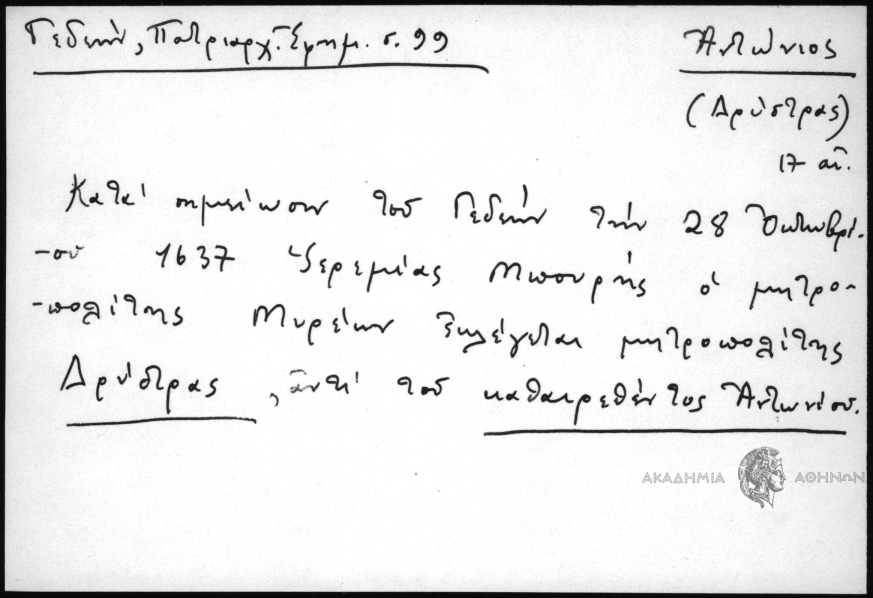 Γεδεών, Πατριαρχ. Ἐφημ. σ. 99
Ἀντώνιος
(Δρύστρας)
17 αἰ.
Κατὰ σημείωσιν τοῦ Γεδεών τὴν 28 Ὀκτωβρί-
-ου 1637 Ἱερεμίας Μπουρῆς ὁ μητρο-
-πολίτης Μυρέων ἐκλέγεται μητροπολίτης
Δρύστρας, ἀντὶ τοῦ καθαιρεθέντος Ἀντωνίου.
ΑΚΑΔΗΜΙΑ ΑΘΗΝΩΝ